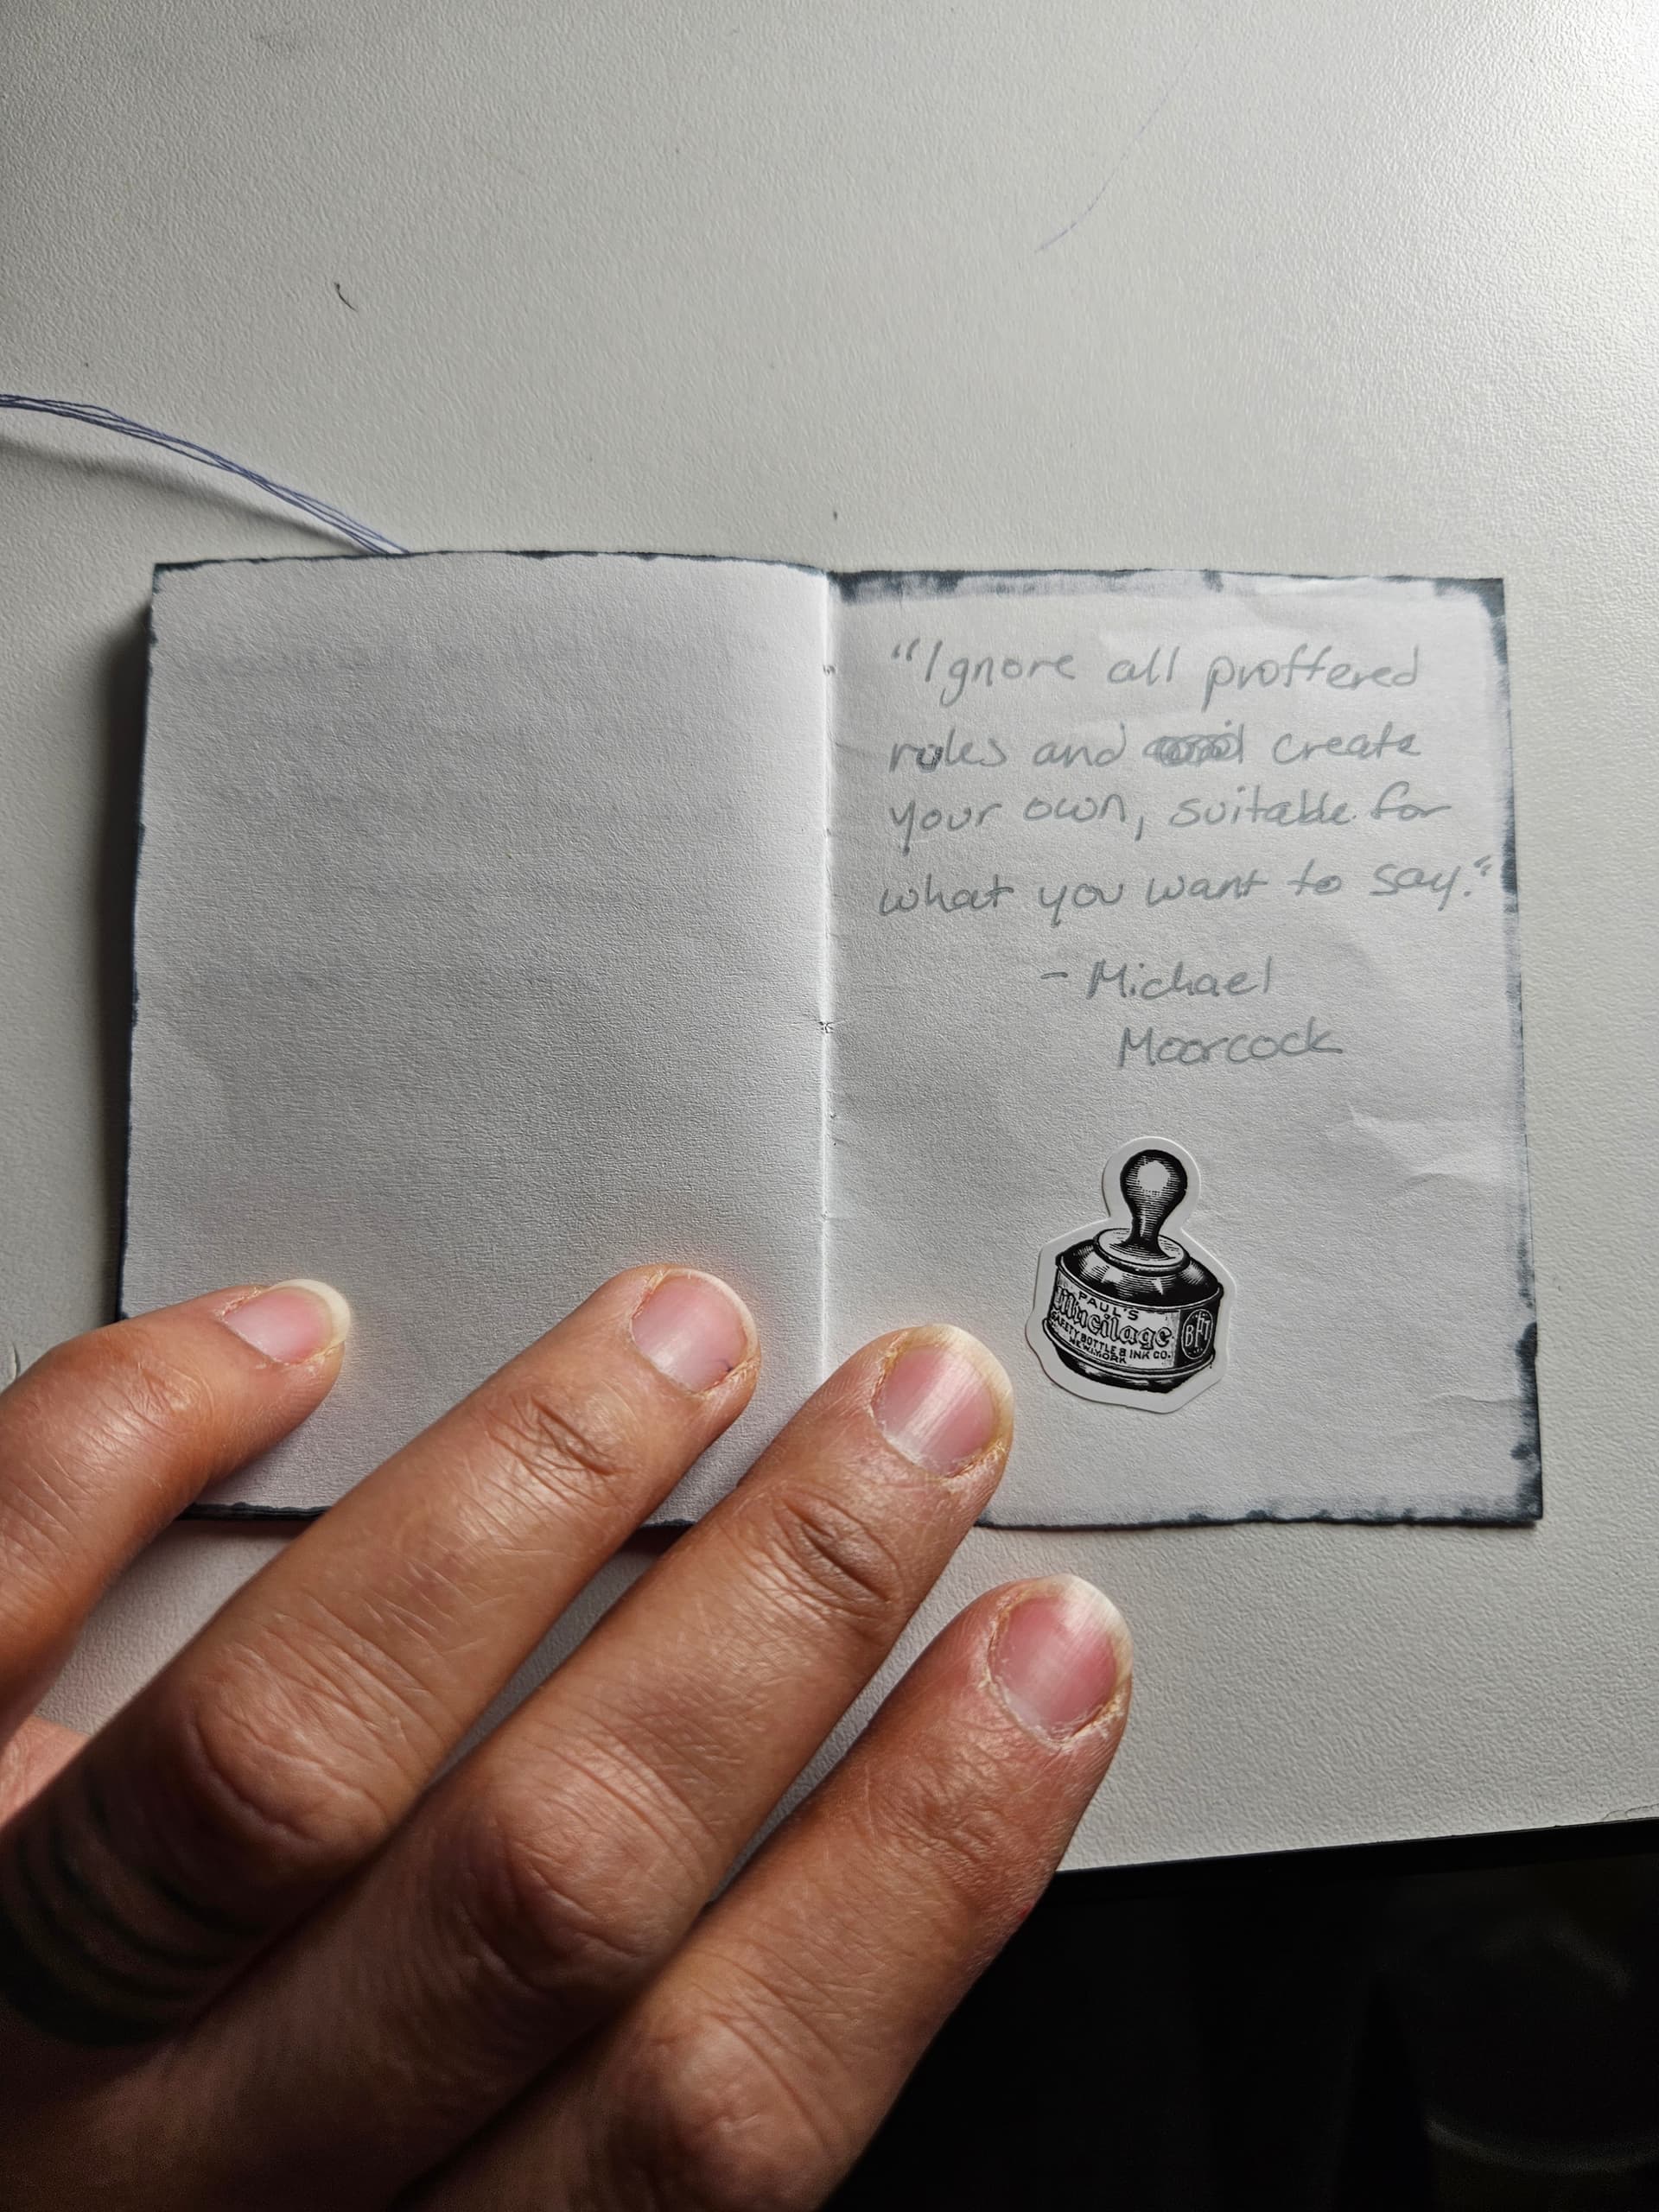 “Ignore all proffered
rules and create
your own, suitable for
what you want to say.”
- Michael
Moorcock
PAUL'S
Mucilage
SAFETY BOTTLE & INK CO.
NEW YORK